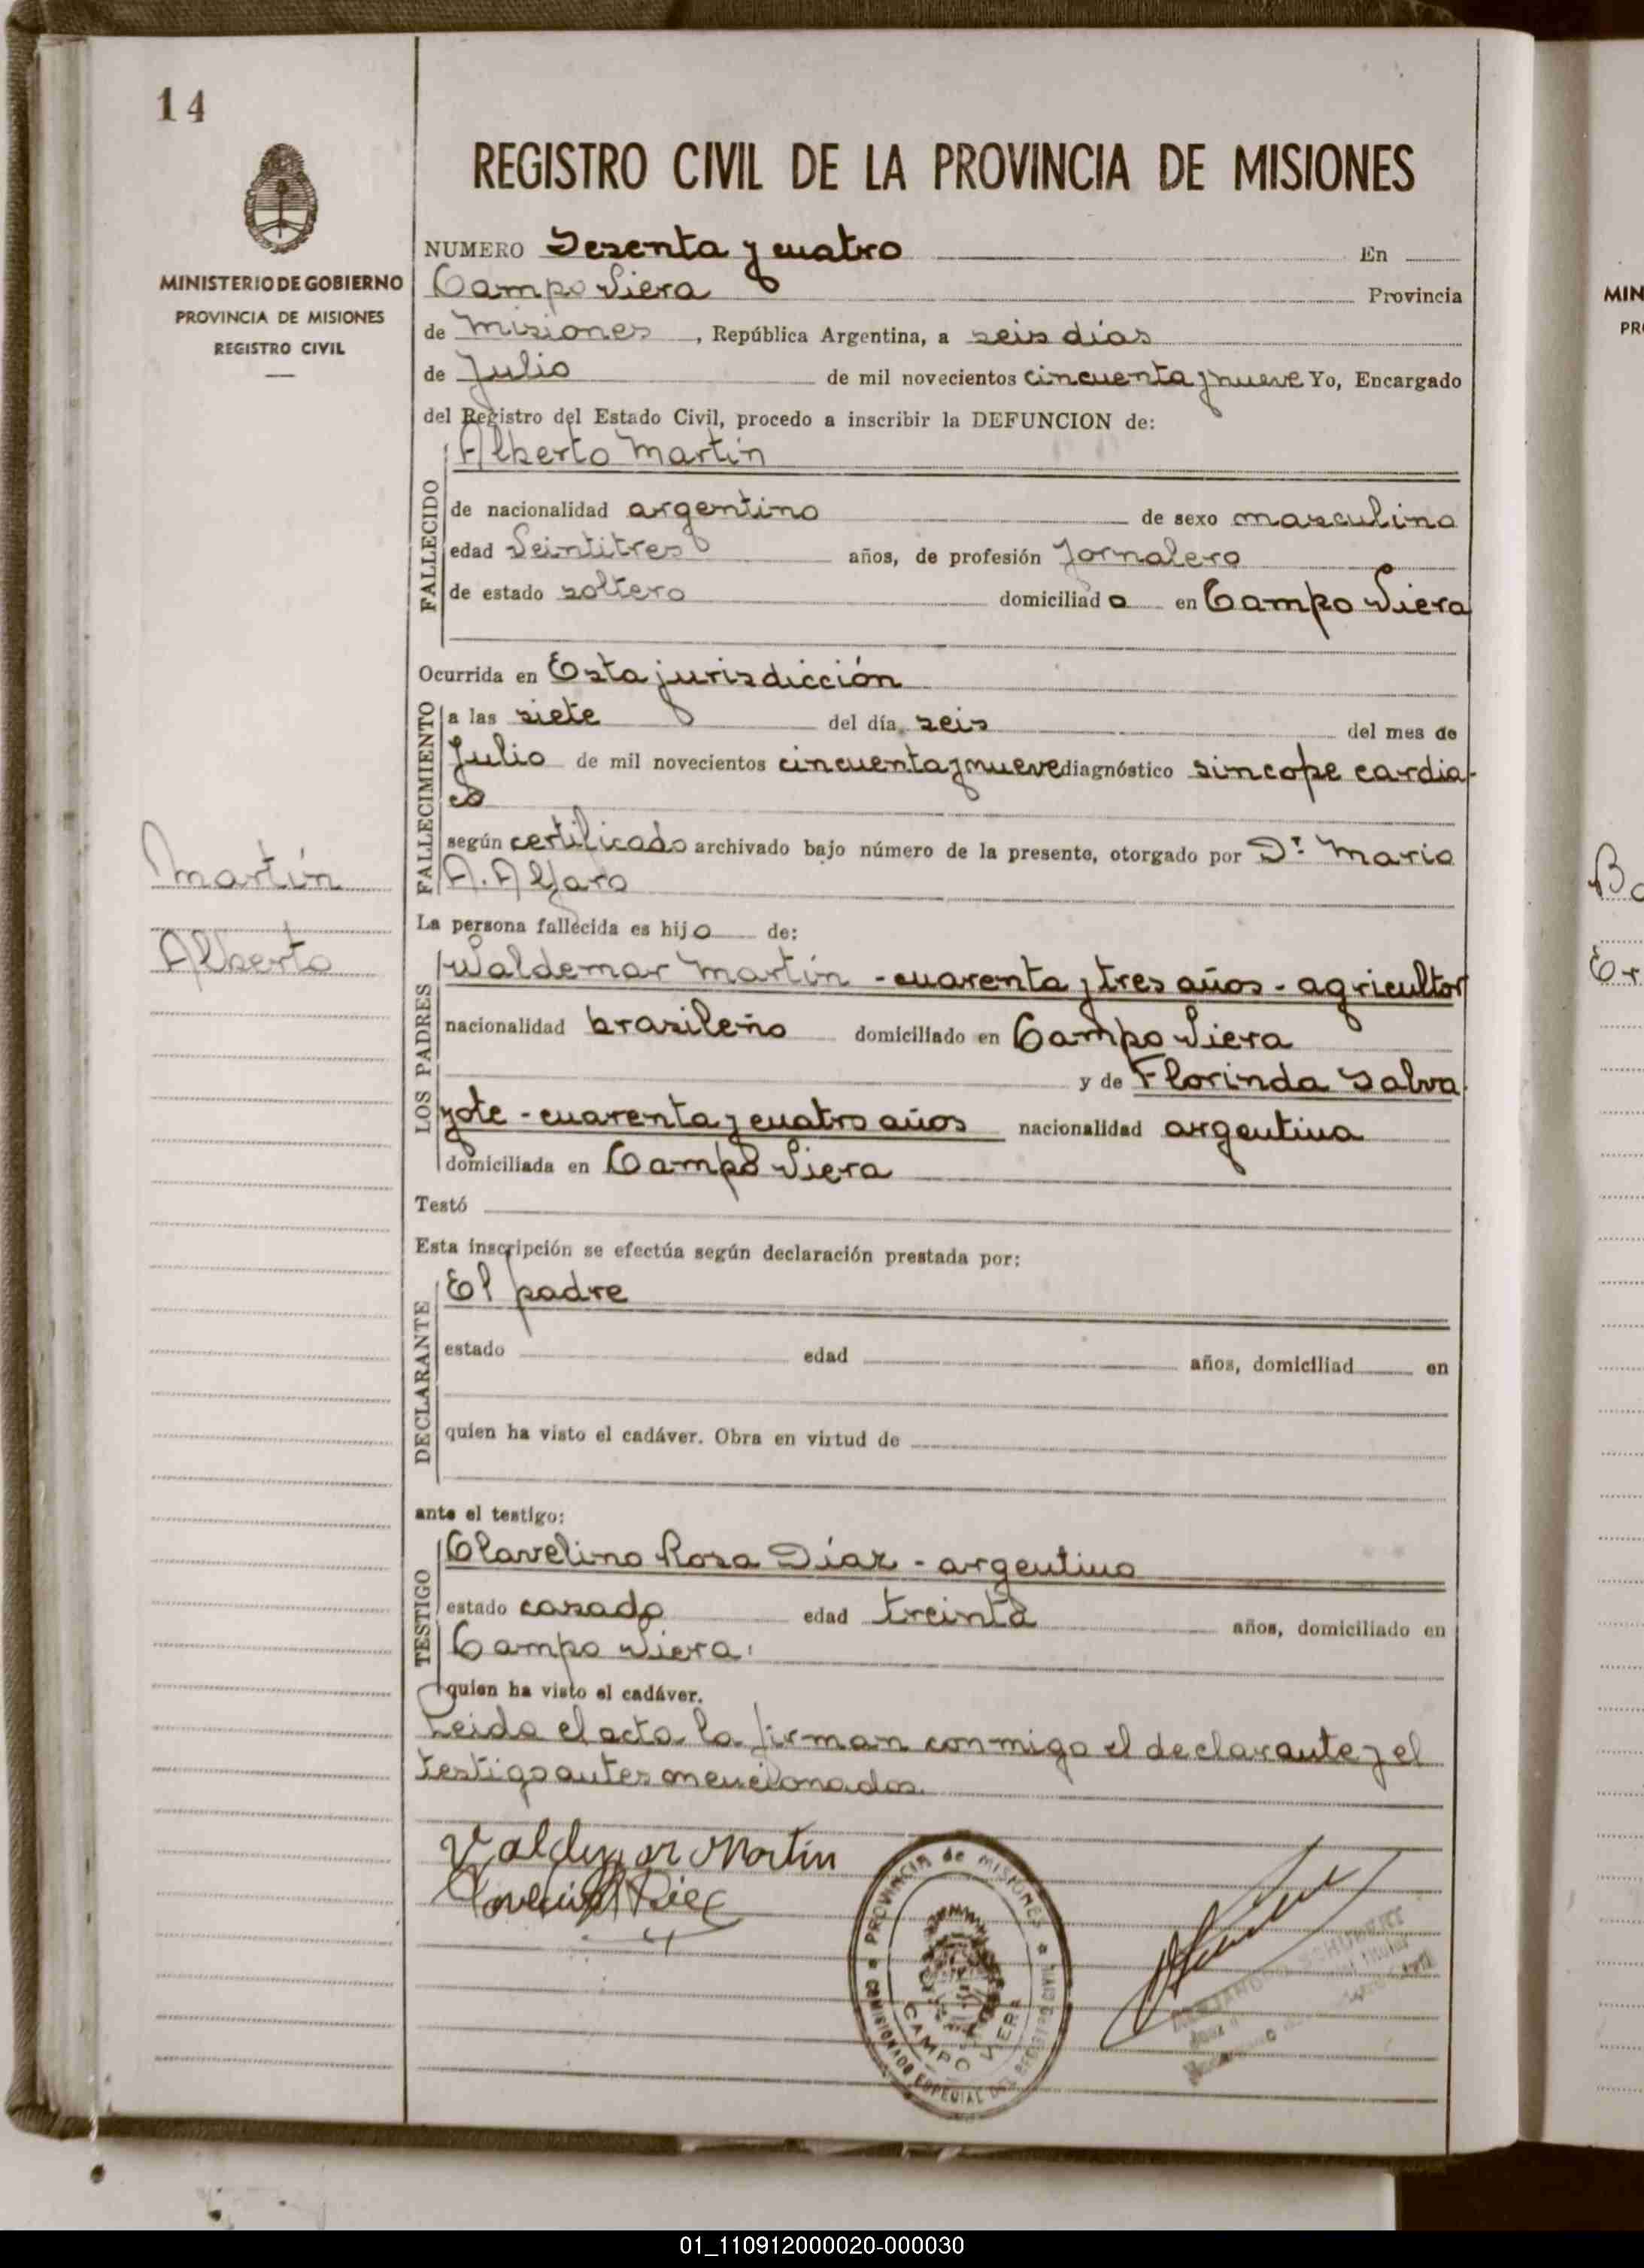 14
MINISTERIO DE GOBIERNO
PROVINCIA DE MISIONES
REGISTRO CIVIL
REGISTRO CIVIL DE LA PROVINCIA DE MISIONES
NUMERO Sesenta y cuatro En
Campo Viera Provincia
de Misiones, República Argentina, a seis días
de Julio de mil novecientos cincuenta y nueve Yo, Encargado
del Registro del Estado Civil, procedo a inscribir la DEFUNCION de:
Alberto Martin
FALLECIDO
de nacionalidad argentino de sexo masculino
edad Veintitres años, de profesión Jornalero
de estado soltero domiciliado en Campo Viera
Ocurrida en Esta jurisdicción
FALLECIMIENTO
a las siete del día seis del mes de
Julio de mil novecientos cincuenta y nueve diagnóstico sincope cardia-
co
según certificado archivado bajo número de la presente, otorgado por Dr. Mario
A. Alfaro
Martín
Alberto
La persona fallecida es hijo de:
LOS PADRES
Waldemar Martín - cuarenta y tres años - agricultor
nacionalidad brasileño domiciliado en Campo Viera
y de Florinda Salva
zote - cuarenta y cuatro años nacionalidad argentina
domiciliada en Campo Viera
Testó
Esta inscripción se efectúa según declaración prestada por:
DECLARANTE
El padre
estado edad años, domiciliad en
quien ha visto el cadáver. Obra en virtud de
ante el testigo:
TESTIGO
Clavelino Rosa Díaz - argentino
estado casado edad treinta años, domiciliado en
Campo Viera.
quien ha visto el cadáver.
Leida el acta la firman conmigo el declarante y el
testigo antes mencionados.
Valdemar Martin
PROVINCIA de MISIONES
COMISIONADO ESPECIAL DEL REGISTRO CIVIL
CAMPO VIERA
MIN
PR
Ba
Er
01_110912000020-000030